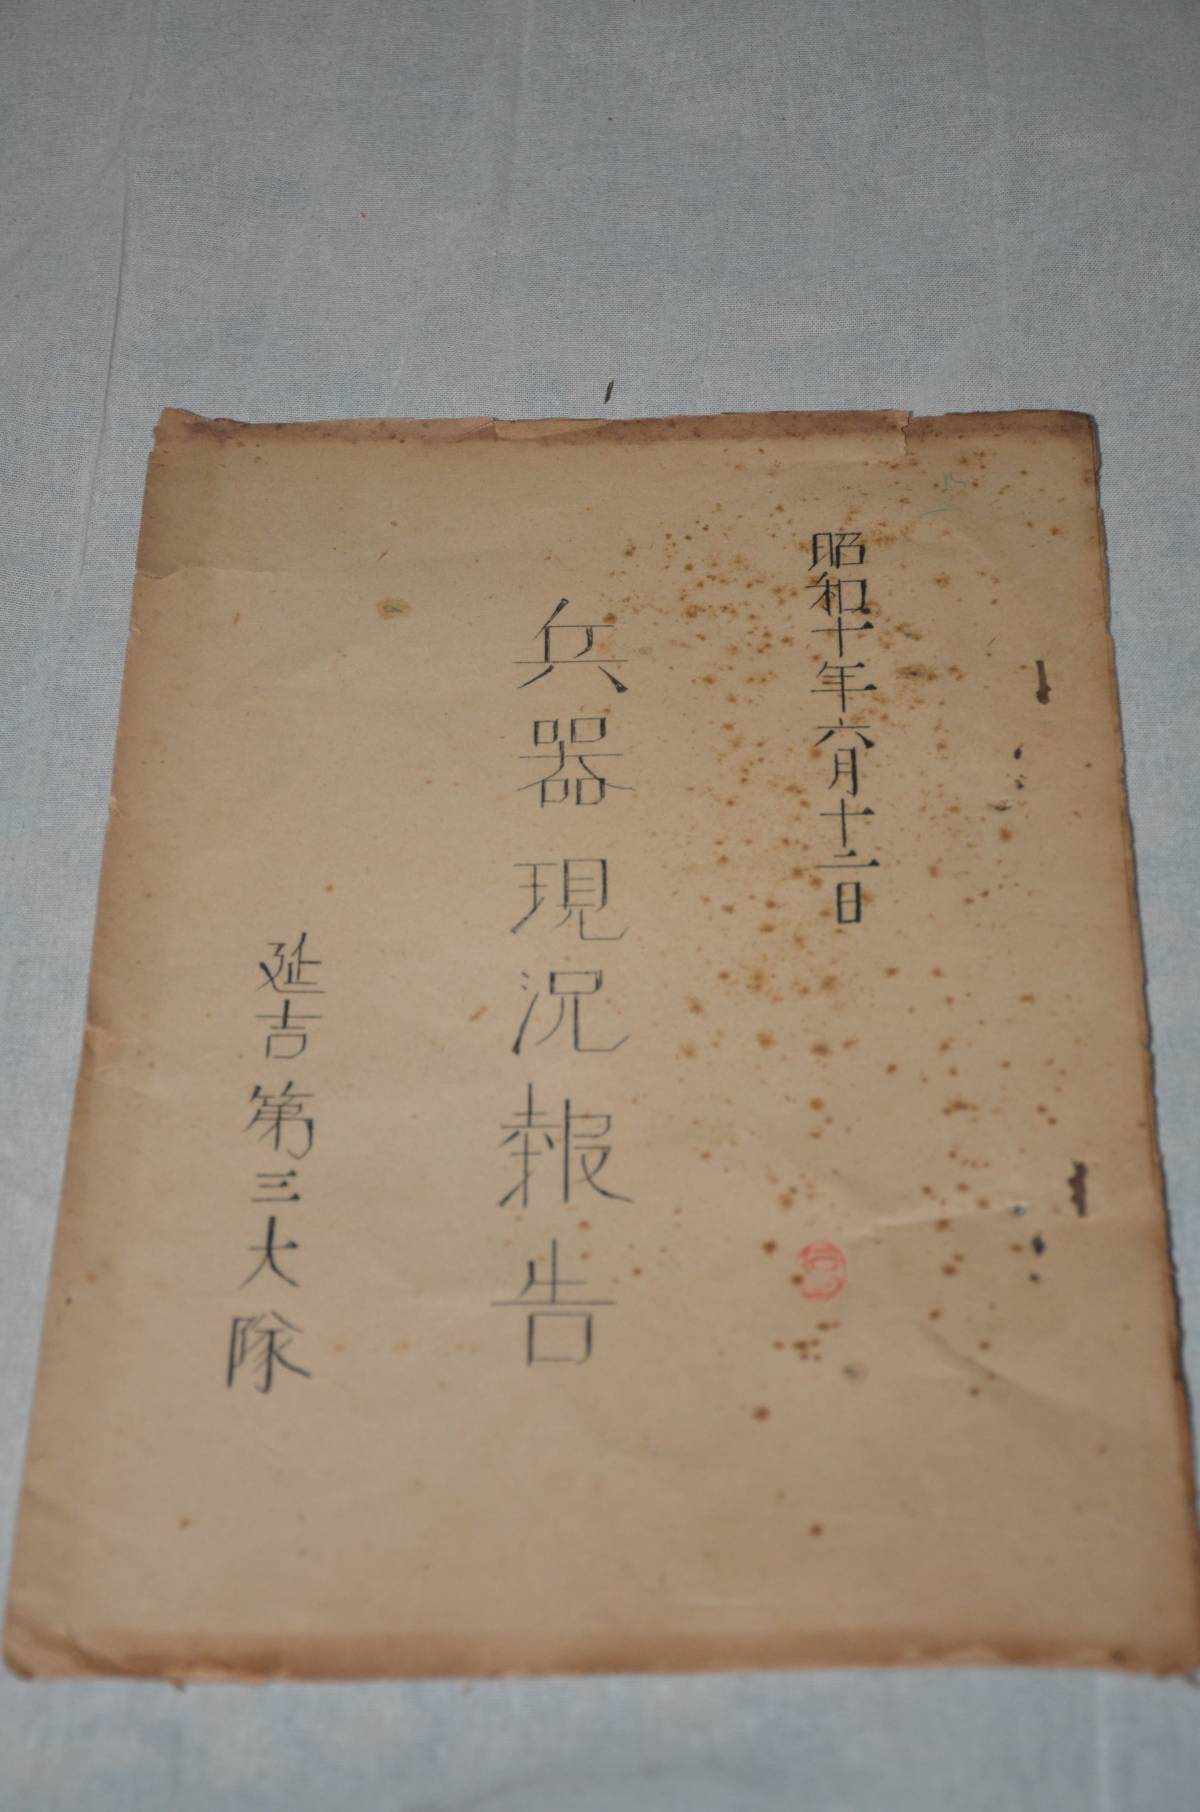 昭和十年六月十二日
兵器現況報告
延吉第三大隊